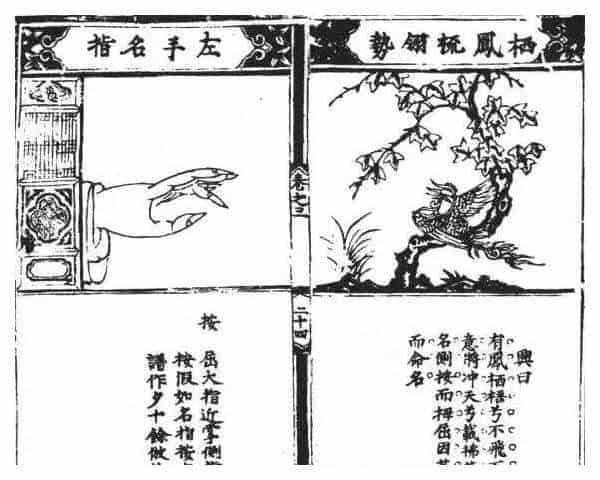 栖鳳梳翎勢
興曰
有鳳栖梧兮不飛
意將冲天兮載拂
名側按而拇屈因
而命名
卷之
二十四
左手名指
按
屈大指近掌側
按假如名指按
譜作夕十餘倣